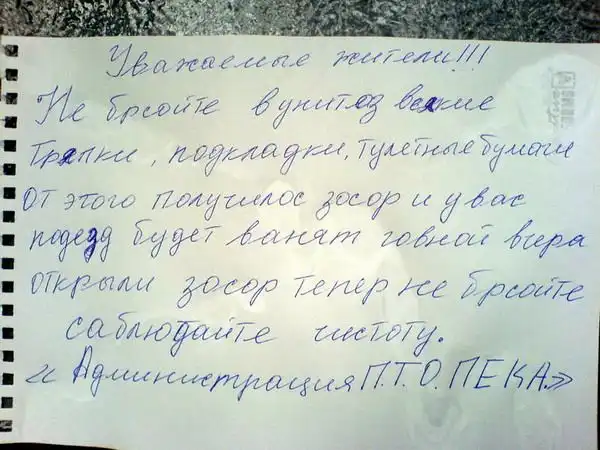 Уважаемые жители!!!
Не брсойте в унитоз всякие
Тряпки, подкладки, тулетные бумаги
От этого получилос зосор и у вас
подезд будет ванят говной вчера
открыли зосор тепер не брсойте
саблюдайте чистоту.
« Администрация П.Т.О. ПЕКА.»